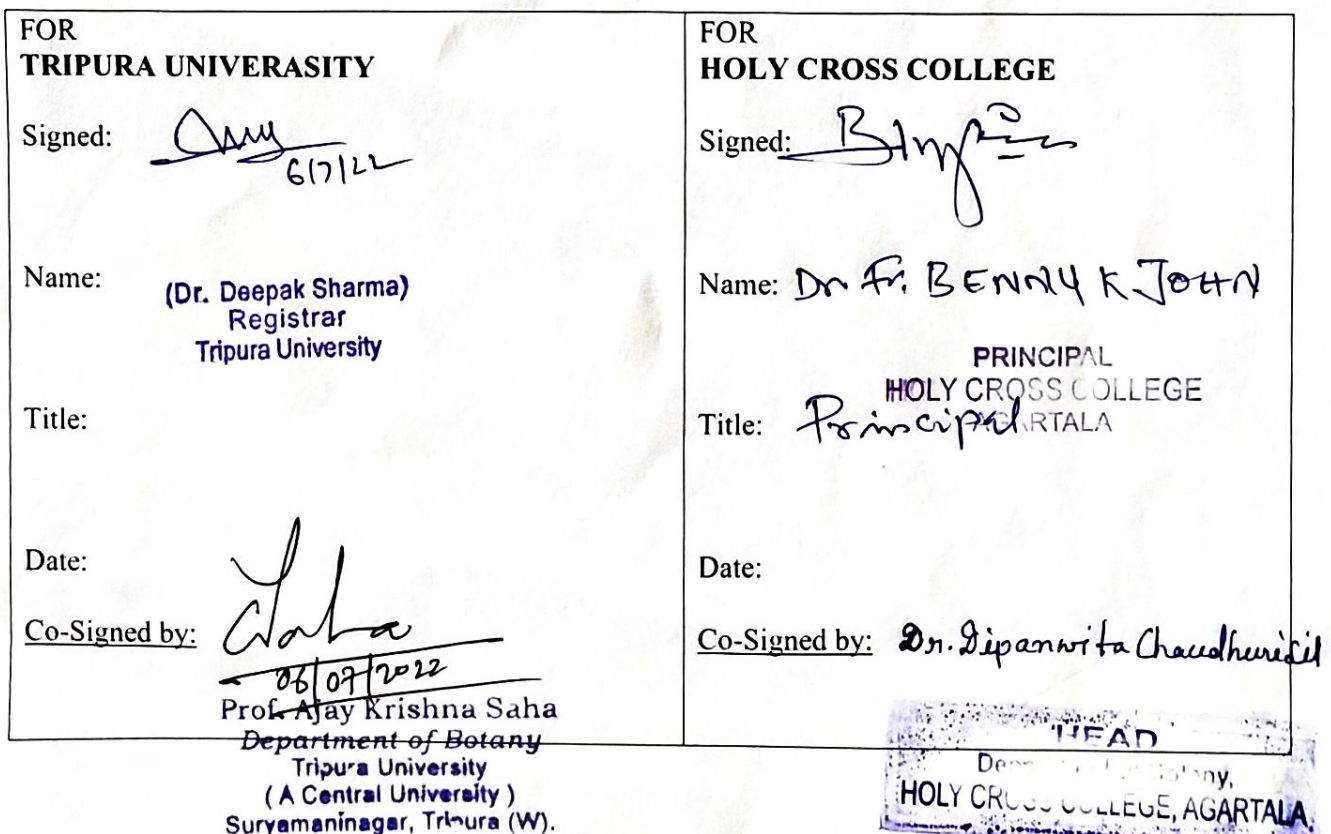 FOR
TRIPURA UNIVERASITY
Signed:
6/7/22
Name:
(Dr. Deepak Sharma)
Registrar
Tripura University
Title:
Date:
Co-Signed by:
06/07/2022
Prof. Ajay Krishna Saha
Department of Botany
Tripura University
( A Central University )
Suryamaninagar, Tripura (W).
FOR
HOLY CROSS COLLEGE
Signed:
Name: Dr Fr. BENNY K JOHN
PRINCIPAL
HOLY CROSS COLLEGE
AGARTALA
Title: Principal
Date:
Co-Signed by: Dr. Dipanwita Chaudhuri Sil
HEAD
HOLY CROSS COLLEGE, AGARTALA.